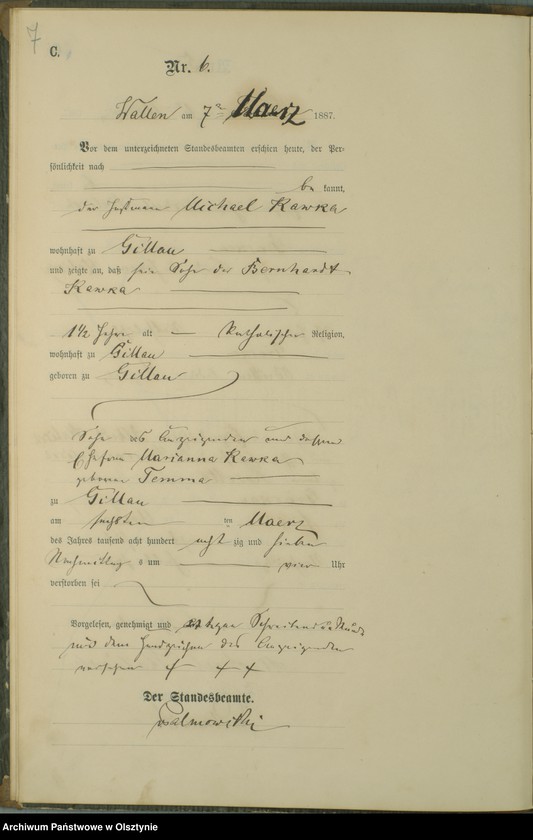 7
C.
Nr. 6.
Wallen am 7ten Maerz 1887.
Vor dem unterzeichneten Standesbeamten erschien heute, der Per-
sönlichkeit nach
be kannt,
der Michael Kawka
wohnhaft zu Gillau
und zeigte an, daß sein Sohn der Bernhardt
Kawka
1½ Jahre alt katholischer Religion,
wohnhaft zu Gillau
geboren zu Gillau
Sohn des Anzeigenden und dessen
Ehefrau Marianna Kawka
geborene Temma
zu Gillau
am sechsten ten Maerz
des Jahres tausend acht hundert acht zig und sieben
Nachmittag s um vier Uhr
verstorben sei
Vorgelesen, genehmigt und wegen
mit dem Handzeichen des Anzeigenden
versehen + + +
Der Standesbeamte.
Archiwum Państwowe w Olsztynie